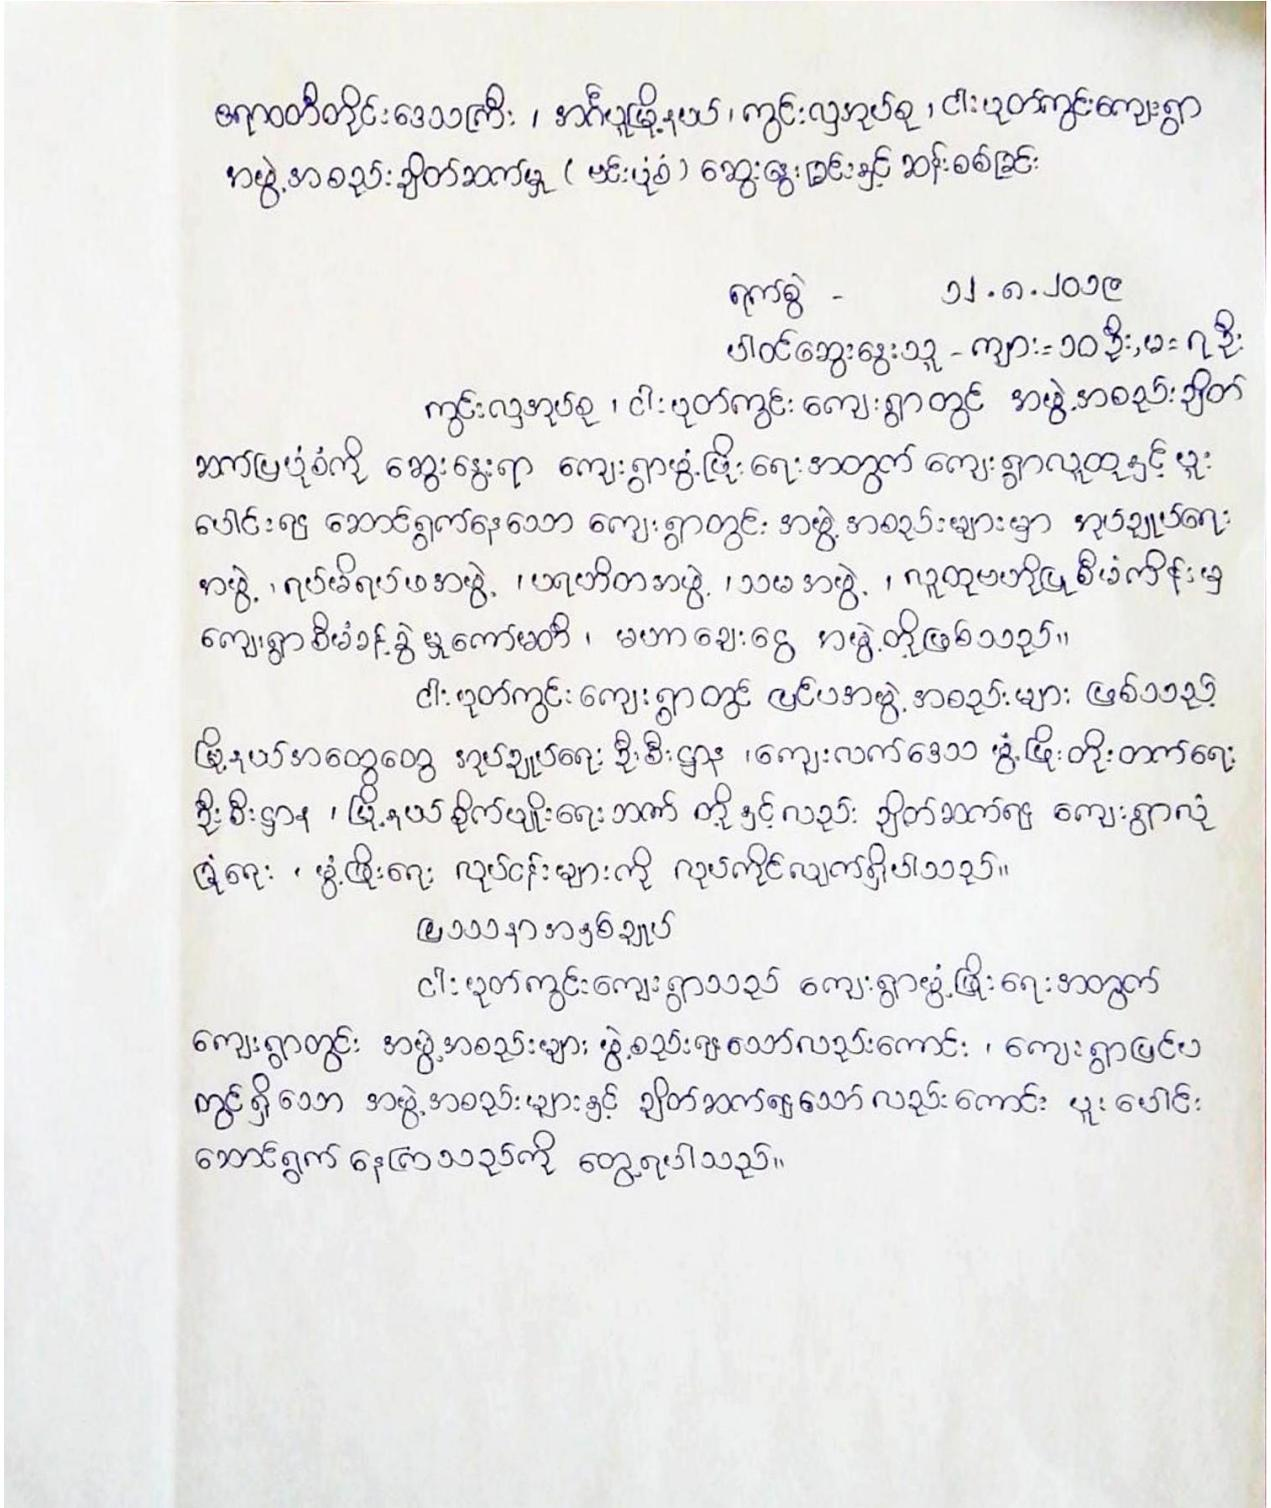 ဧရာဝတီတိုင်းဒေသကြီး ၊ အင်္ဂပူမြို့နယ် ၊ ကွင်းလှအုပ်စု ၊ ငါးပုတ်ကွင်းကျေးရွာ
အဖွဲ့အစည်းချိတ်ဆက်မှု ( ဗင်းပုံစံ ) ဆွေးနွေးခြင်းနှင့် ဆန်းစစ်ခြင်း
ရက်စွဲ - ၁၂.၈.၂၀၁၉
ပါဝင်ဆွေးနွေးသူ - ကျား=၁၀ဦး, မ=၇ဦး
ကွင်းလှအုပ်စု ၊ ငါးပုတ်ကွင်းကျေးရွာတွင် အဖွဲ့အစည်းချိတ်
ဆက်ပြပုံစံကို ဆွေးနွေးရာ ကျေးရွာဖွံ့ဖြိုးရေးအတွက် ကျေးရွာလူထုနှင့် ပူး
ပေါင်း၍ ဆောင်ရွက်နေသော ကျေးရွာတွင်း အဖွဲ့အစည်းများမှာ အုပ်ချုပ်ရေး
အဖွဲ့ ၊ ရပ်မိရပ်ဖအဖွဲ့ ၊ ပရဟိတအဖွဲ့ ၊ သမအဖွဲ့ ၊ လူထုဗဟိုပြုစီမံကိန်းမှ
ကျေးရွာစီမံခန့်ခွဲမှုကော်မတီ ၊ မဟာချေးငွေ အဖွဲ့တို့ဖြစ်သည်။
ငါးပုတ်ကွင်းကျေးရွာတွင် ပြင်ပအဖွဲ့အစည်းများ ဖြစ်သည့်
မြို့နယ်အထွေထွေ အုပ်ချုပ်ရေးဦးစီးဌာန ၊ ကျေးလက်ဒေသ ဖွံ့ဖြိုးတိုးတက်ရေး
ဦးစီးဌာန ၊ မြို့နယ်စိုက်ပျိုးရေးဘဏ် တို့နှင့်လည်း ချိတ်ဆက်၍ ကျေးရွာလုံ
ခြုံရေး ၊ ဖွံ့ဖြိုးရေး လုပ်ငန်းများကို လုပ်ကိုင်လျက်ရှိပါသည်။
ပြဿနာအနှစ်ချုပ်
ငါးပုတ်ကွင်းကျေးရွာသည် ကျေးရွာဖွံ့ဖြိုးရေးအတွက်
ကျေးရွာတွင်း အဖွဲ့အစည်းများ ဖွဲ့စည်း၍သော်လည်းကောင်း ၊ ကျေးရွာပြင်ပ
တွင်ရှိသော အဖွဲ့အစည်းများနှင့် ချိတ်ဆက်၍သော်လည်းကောင်း ပူးပေါင်း
ဆောင်ရွက်နေကြသည်ကို တွေ့ရပါသည်။